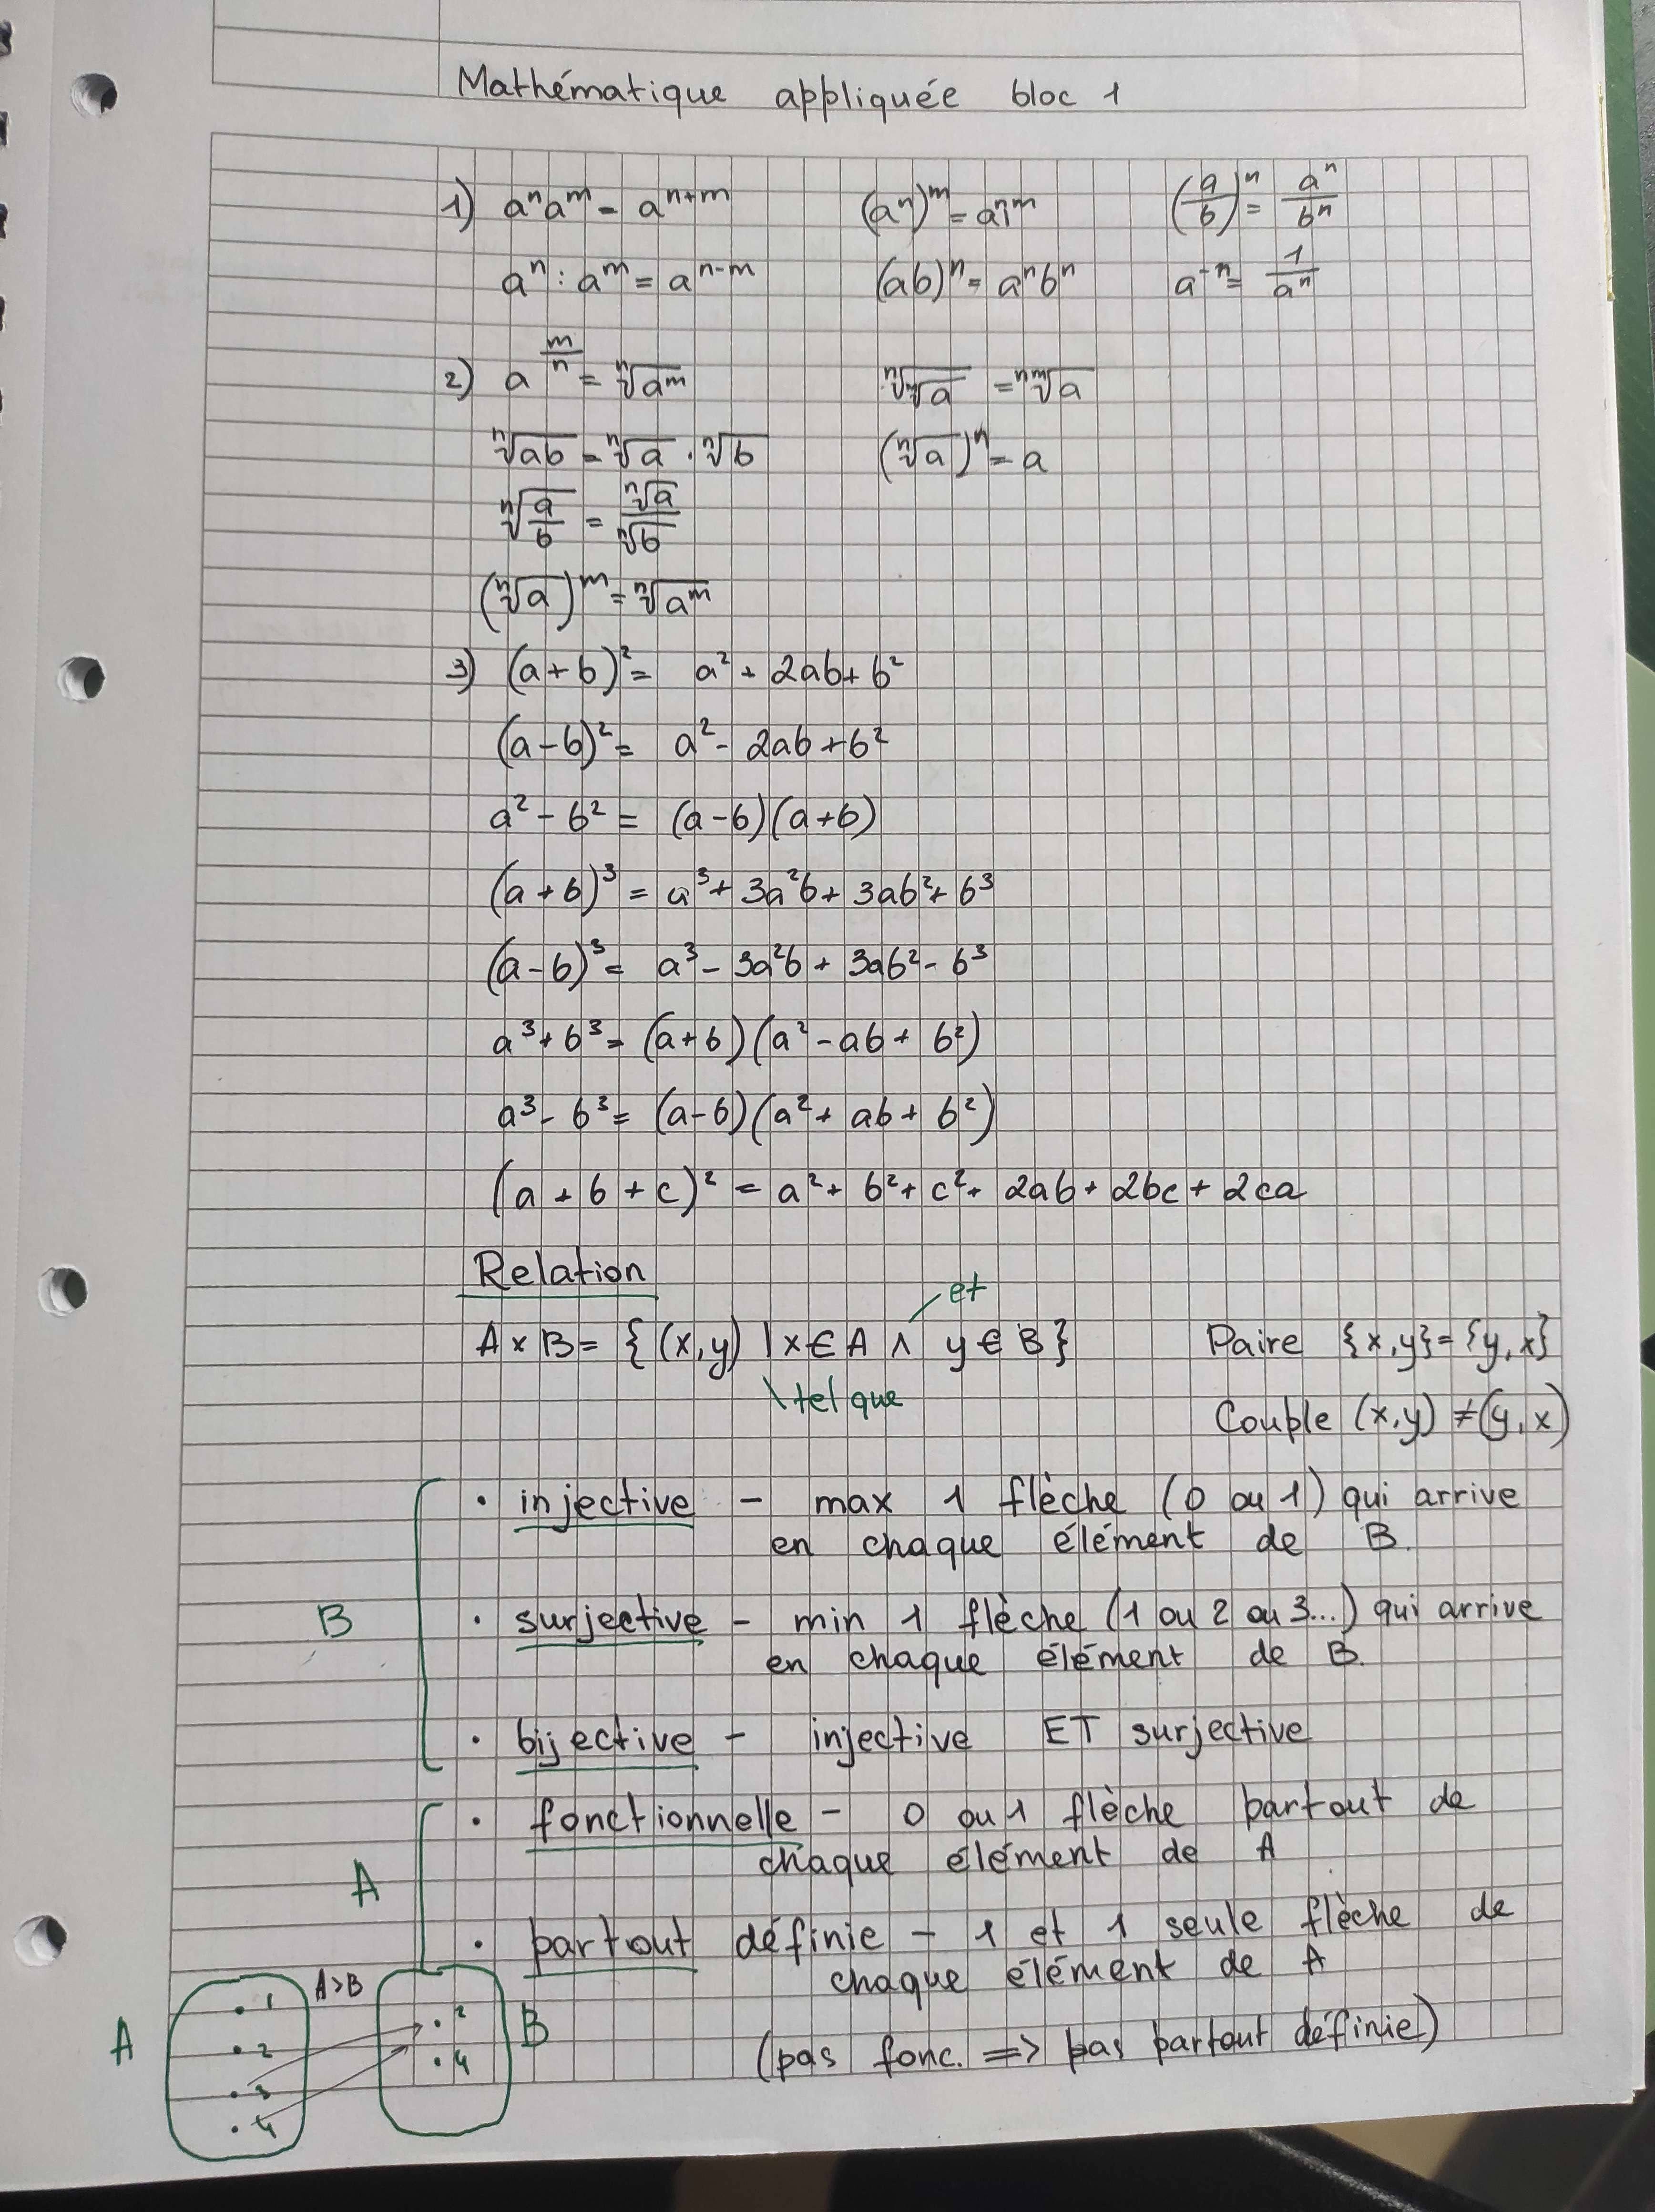 Mathématique appliquée bloc 1
1) aⁿaᵐ = aⁿ⁺ᵐ (aⁿ)ᵐ = aⁿᵐ (a/b)ⁿ = aⁿ/bⁿ
aⁿ : aᵐ = aⁿ⁻ᵐ (ab)ⁿ = aⁿbⁿ a⁻ⁿ = 1/aⁿ
2) a^(m/n) = ⁿ√aᵐ ⁿ√ᵐ√a = ⁿᵐ√a
ⁿ√ab = ⁿ√a · ⁿ√b (ⁿ√a)ⁿ = a
ⁿ√(a/b) = ⁿ√a/ⁿ√b
(ⁿ√a)ᵐ = ⁿ√aᵐ
3) (a+b)² = a² + 2ab + b²
(a-b)² = a² - 2ab + b²
a² - b² = (a-b)(a+b)
(a+b)³ = a³ + 3a²b + 3ab² + b³
(a-b)³ = a³ - 3a²b + 3ab² - b³
a³ + b³ = (a+b)(a² - ab + b²)
a³ - b³ = (a-b)(a² + ab + b²)
(a + b + c)² = a² + b² + c² + 2ab + 2bc + 2ca
Relation
et
A × B = {(x,y) | x ∈ A ∧ y ∈ B} Paire {x,y} = {y,x}
tel que
Couple (x,y) ≠ (y,x)
· injective - max 1 flèche (0 ou 1) qui arrive
en chaque élément de B.
B
· surjective - min 1 flèche (1 ou 2 ou 3...) qui arrive
en chaque élément de B.
· bijective - injective ET surjective
· fonctionnelle - 0 ou 1 flèche partout de
chaque élément de A
A
· partout définie - 1 et 1 seule flèche de
chaque élément de A
(pas fonc. => pas partout définie)
A>B
A
·1
·2
·3
·4
·2
·4
B